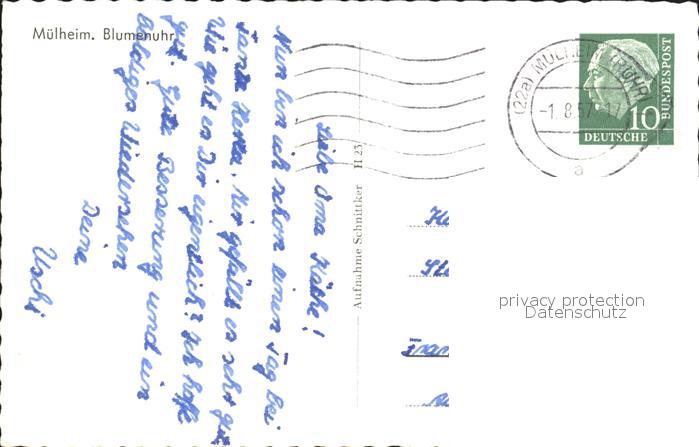 Mülheim. Blumenuhr
Liebe Oma Käthe!
Nun bin ich schon einen Tag bei
Tante Herta. Mir gefällt es sehr gut
Wie geht es Dir eigentlich? Ich hoffe
gut. Gute Besserung und ein
baldiges Wiedersehen
Deine
Uschi
Aufnahme Schnittker H 23
(22a) MÜLHEIM (RUHR)
-1.8.57.-17
a
10
DEUTSCHE
BUNDESPOST
Fran
privacy protection
Datenschutz